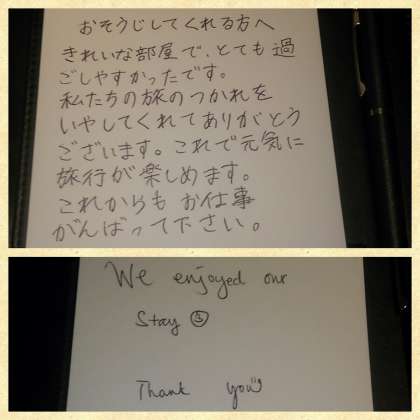 おそうじしてくれる方へ
きれいな部屋で、とても過
ごしやすかったです。
私たちの旅のつかれを
いやしてくれてありがとう
ございます。これで元気に
旅行が楽しめます。
これからも お仕事
がんばって下さい。
We enjoyed our
Stay
Thank you